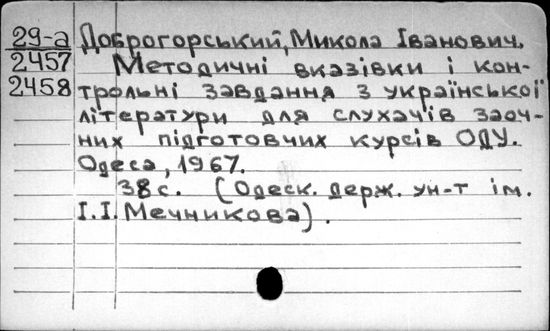 29-а Доброгорський, Микола Іванович.
2457 Методичні вказівки і кон-
2458 трольні завдання з української
літератури для слухачів заоч-
них підготовчих курсів ОДУ.
Одеса, 1967.
38 с. (Одеск. держ. ун-т ім.
І. І. Мечникова).